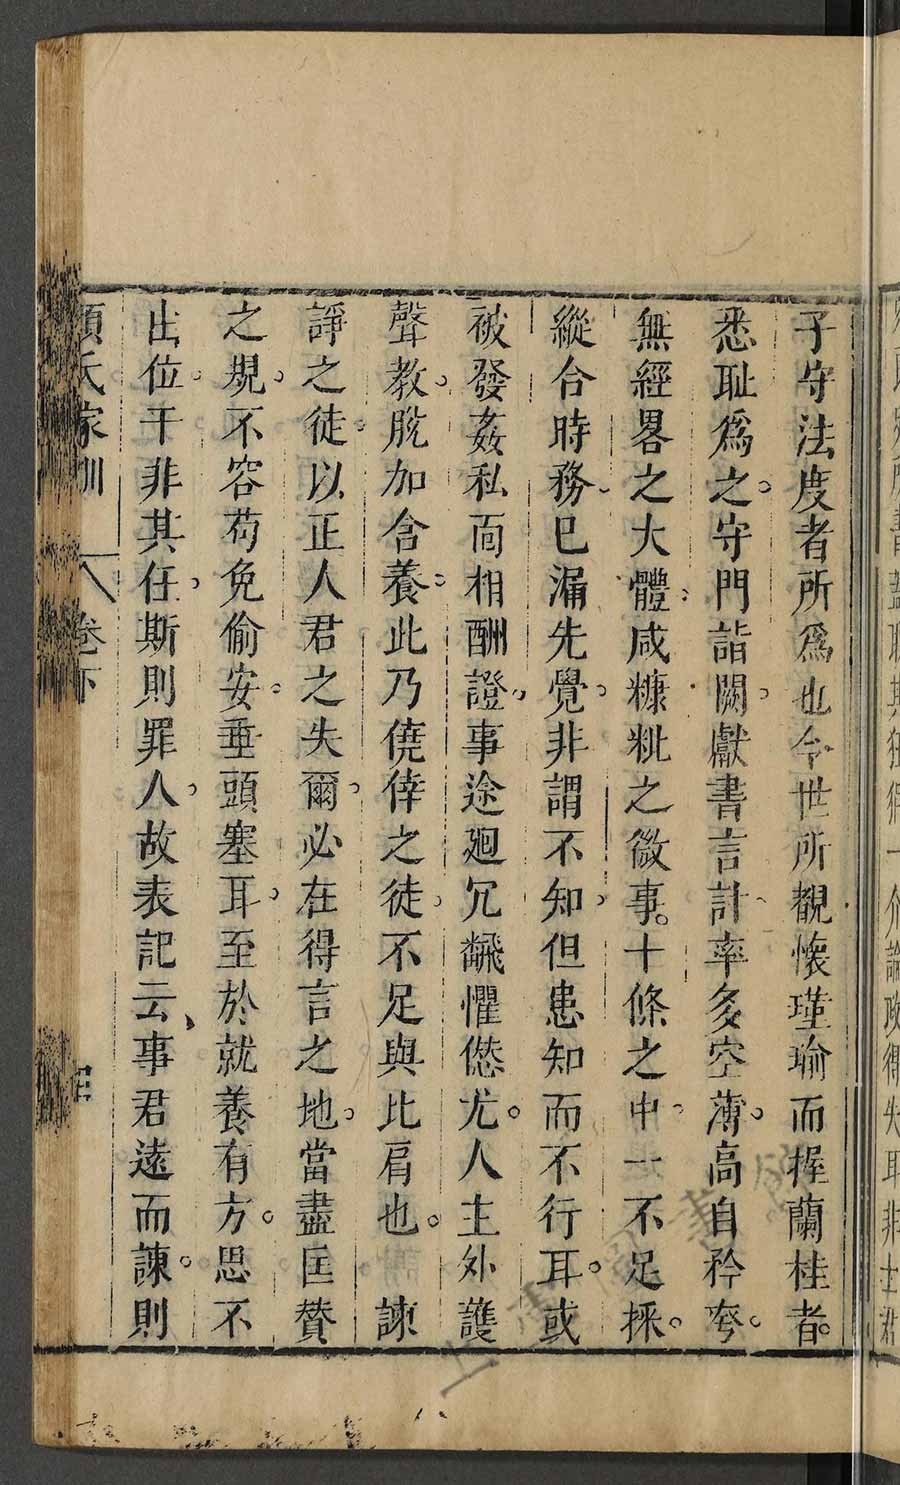 子守法度者所爲也今世所覩懷瑾瑜而握蘭桂者
悉耻爲之守門詣闕獻書言計率多空薄高自矜夸
無經畧之大體咸糠粃之微事十條之中一不足採
縱合時務已漏先覺非謂不知但患知而不行耳或
被發姦私面相酬證事途廻冗飜懼愆尤人主外護
聲教脫加含養此乃僥倖之徒不足與比肩也 諫
諍之徒以正人君之失爾必在得言之地當盡匡贊
之規不容苟免偷安垂頭塞耳至於就養有方思不
出位干非其任斯則罪人故表記云事君遠而諫則
顏氏家訓 卷下